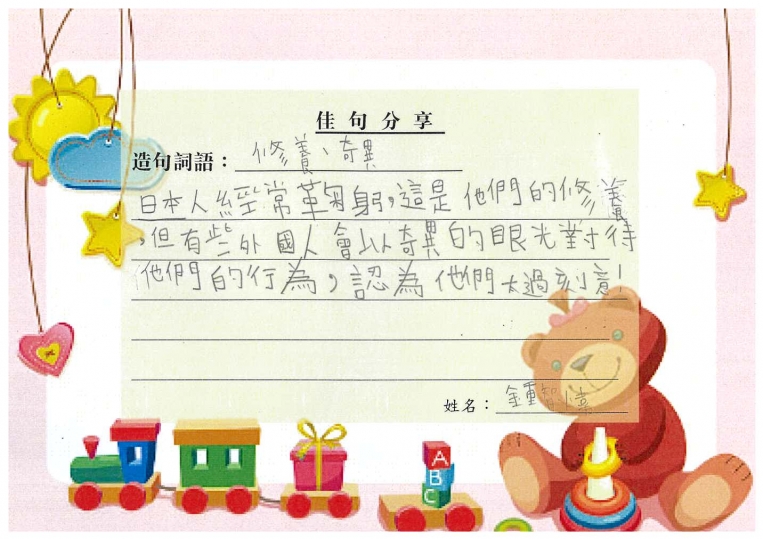 佳句分享
造句詞語：修養、奇異
日本人經常鞠躬，這是他們的修養
，但有些外國人會以奇異的眼光對待
他們的行為，認為他們太過刻意！
姓名：鍾智
A
B
C